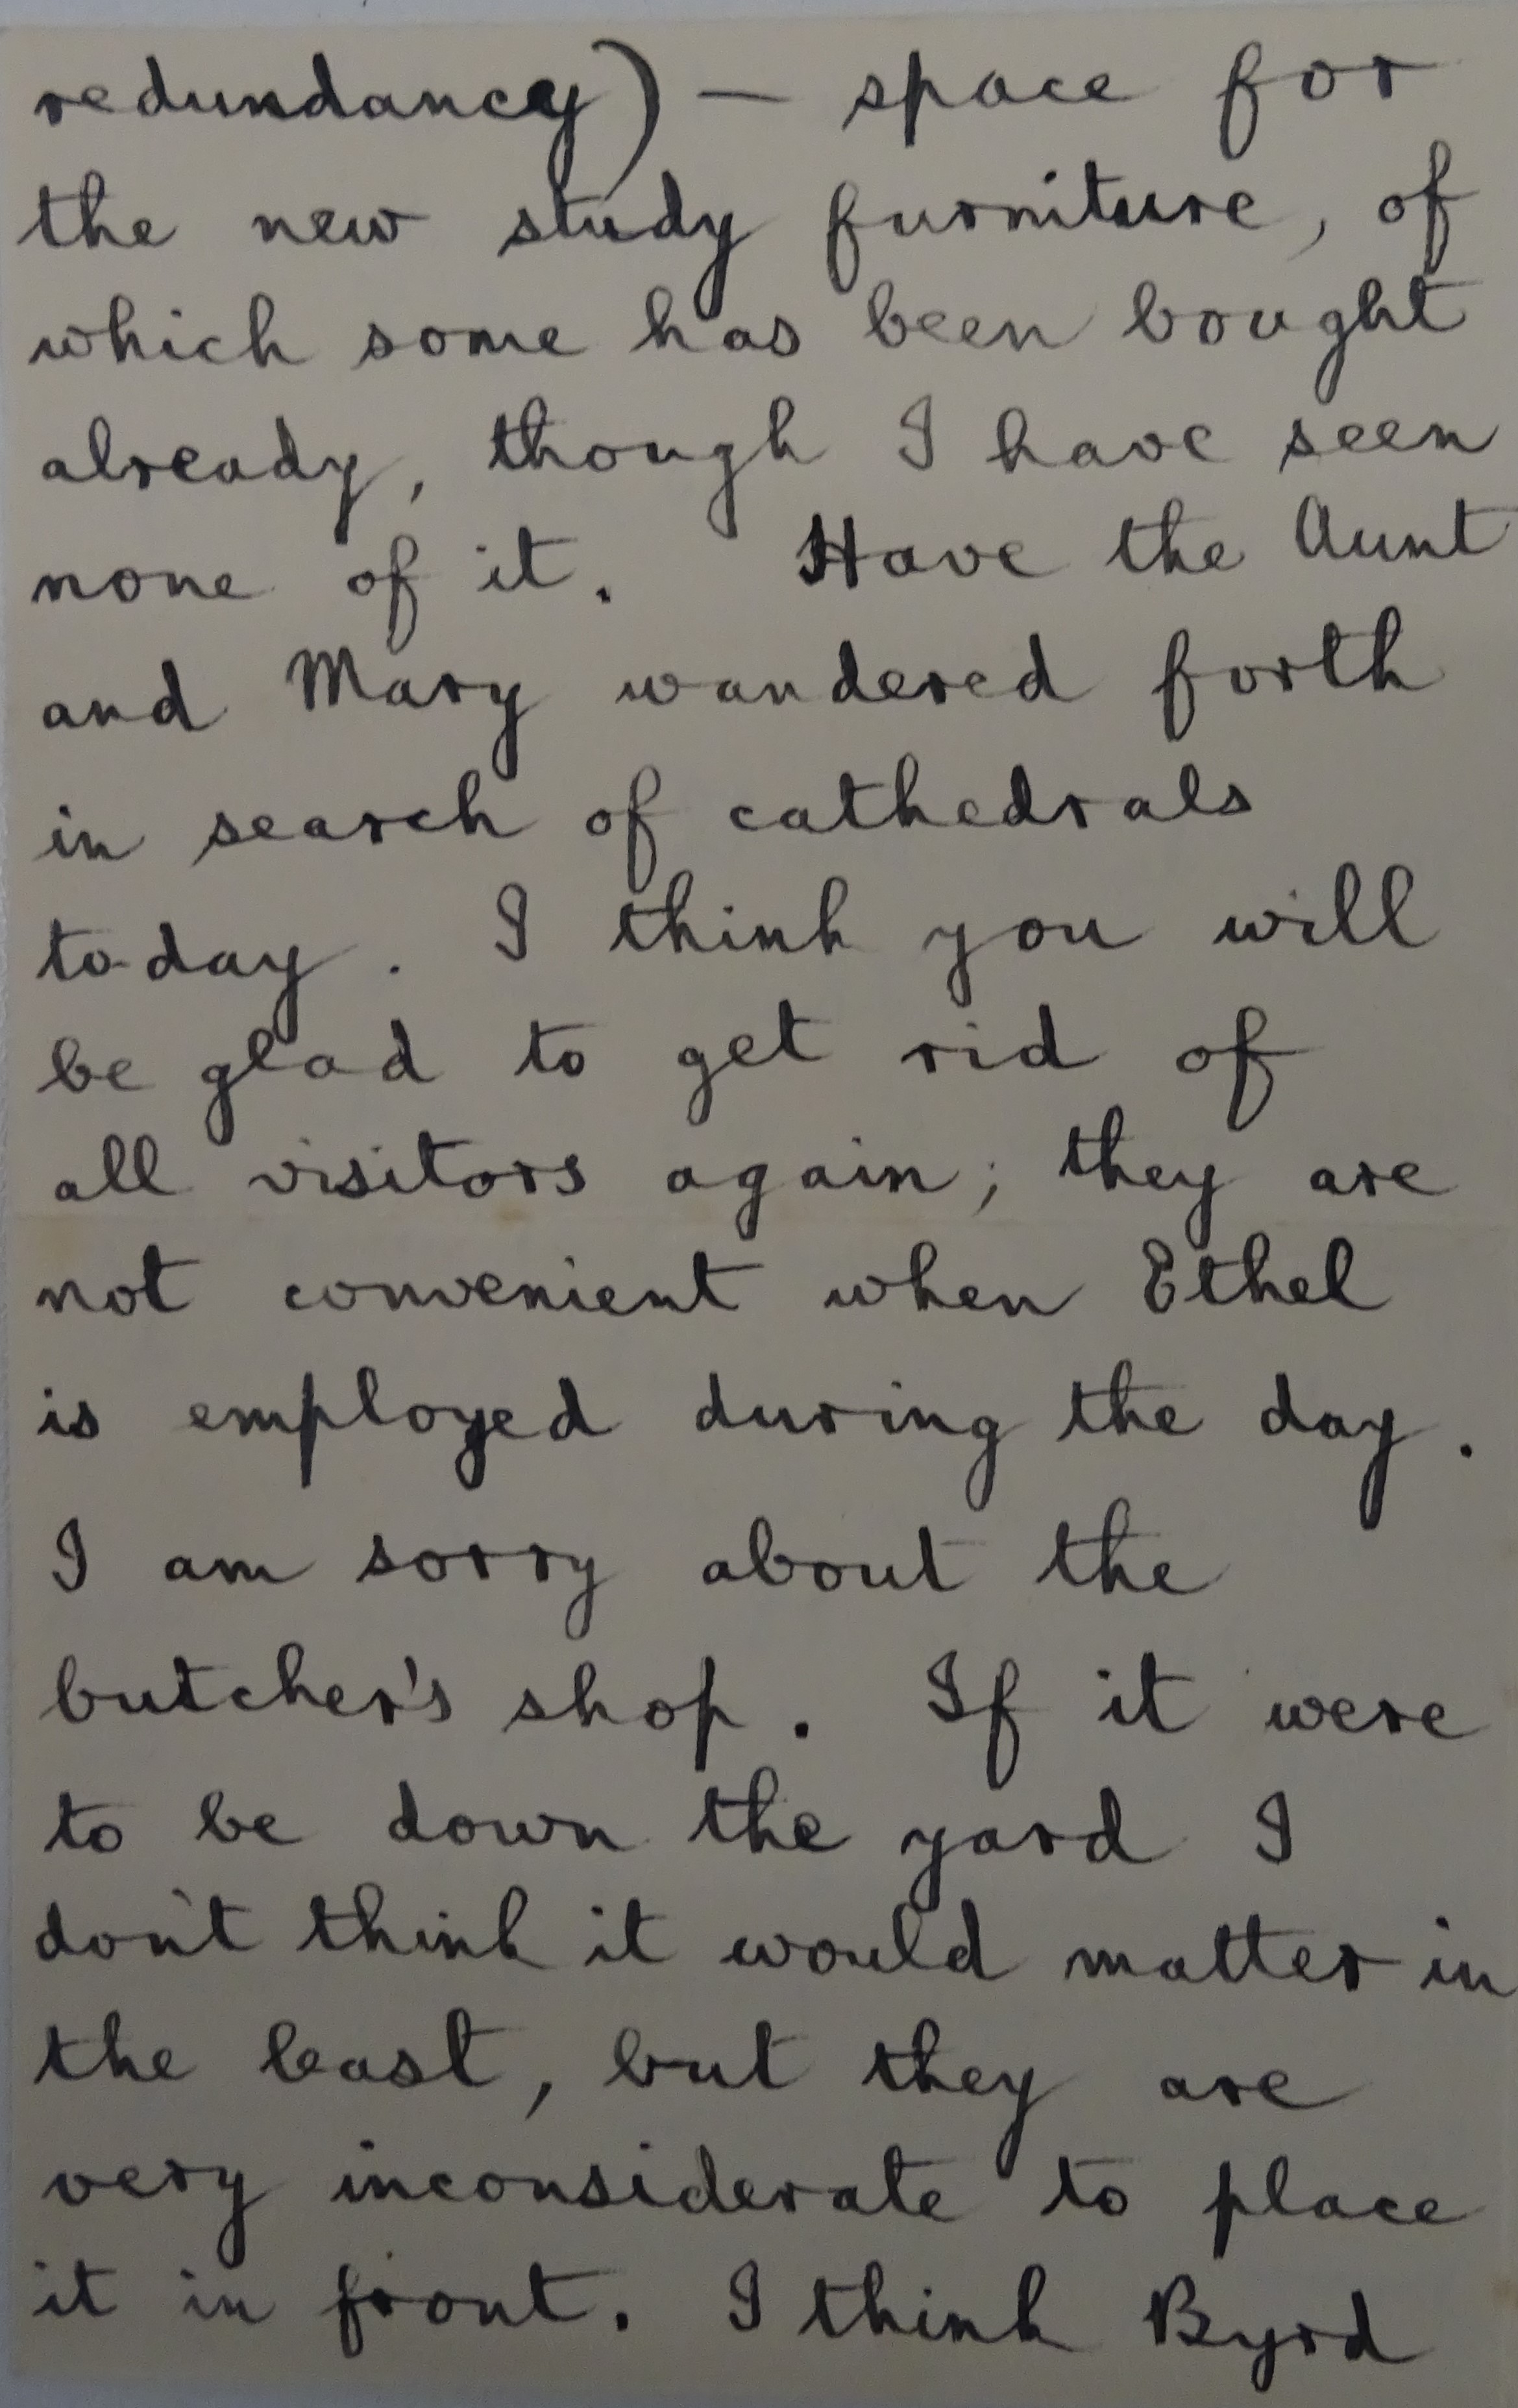 redundancy) — space for
the new study furniture, of
which some has been bought
already, though I have seen
none of it. Have the Aunt
and Mary wandered forth
in search of cathedrals
to-day. I think you will
be glad to get rid of
all visitors again; they are
not convenient when Ethel
is employed during the day.
I am sorry about the
butcher's shop. If it were
to be down the yard I
don't think it would matter in
the least, but they are
very inconsiderate to place
it in front. I think Byrd